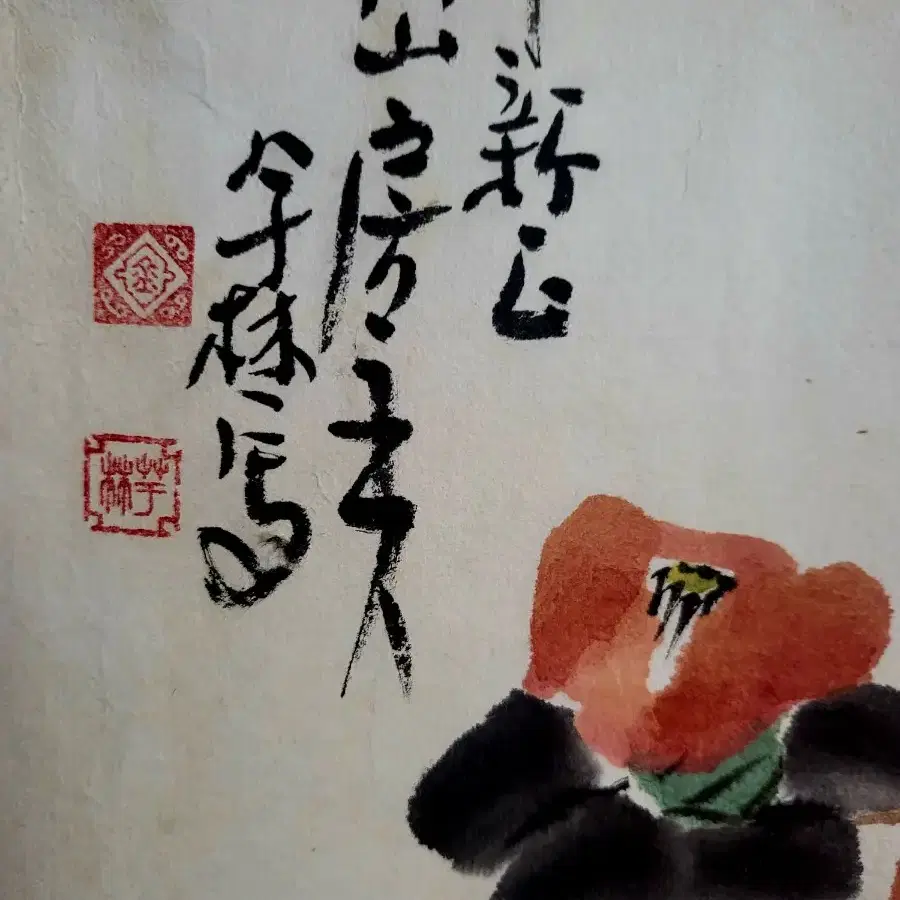 新正
山房主人
芋林寫
芋林